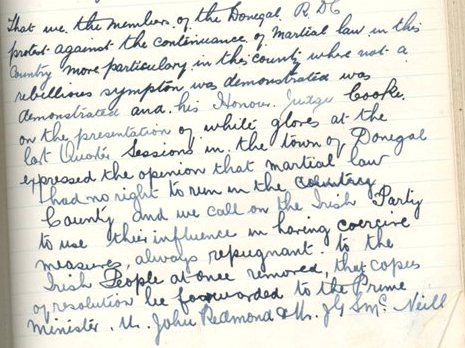 That we the members of the Donegal R.D.C
protest against the continuance of martial law in this
Country more particulary in this county where not a
rebellious sympton was demonstrated was
demonstrated and his Honour Judge Cooke
on the presentation of white gloves at the
last Quarter Sessions in the town of Donegal
expressed the opinion that martial law
had no right to run in the country
County and we call on the Irish Party
to use their influence in having coercive
measures always repugnant to the
Irish People at once removed, that copies
of resolution be forwarded to the Prime
Minister. Mr. John Redmond & Mr. J G S Mc Neill